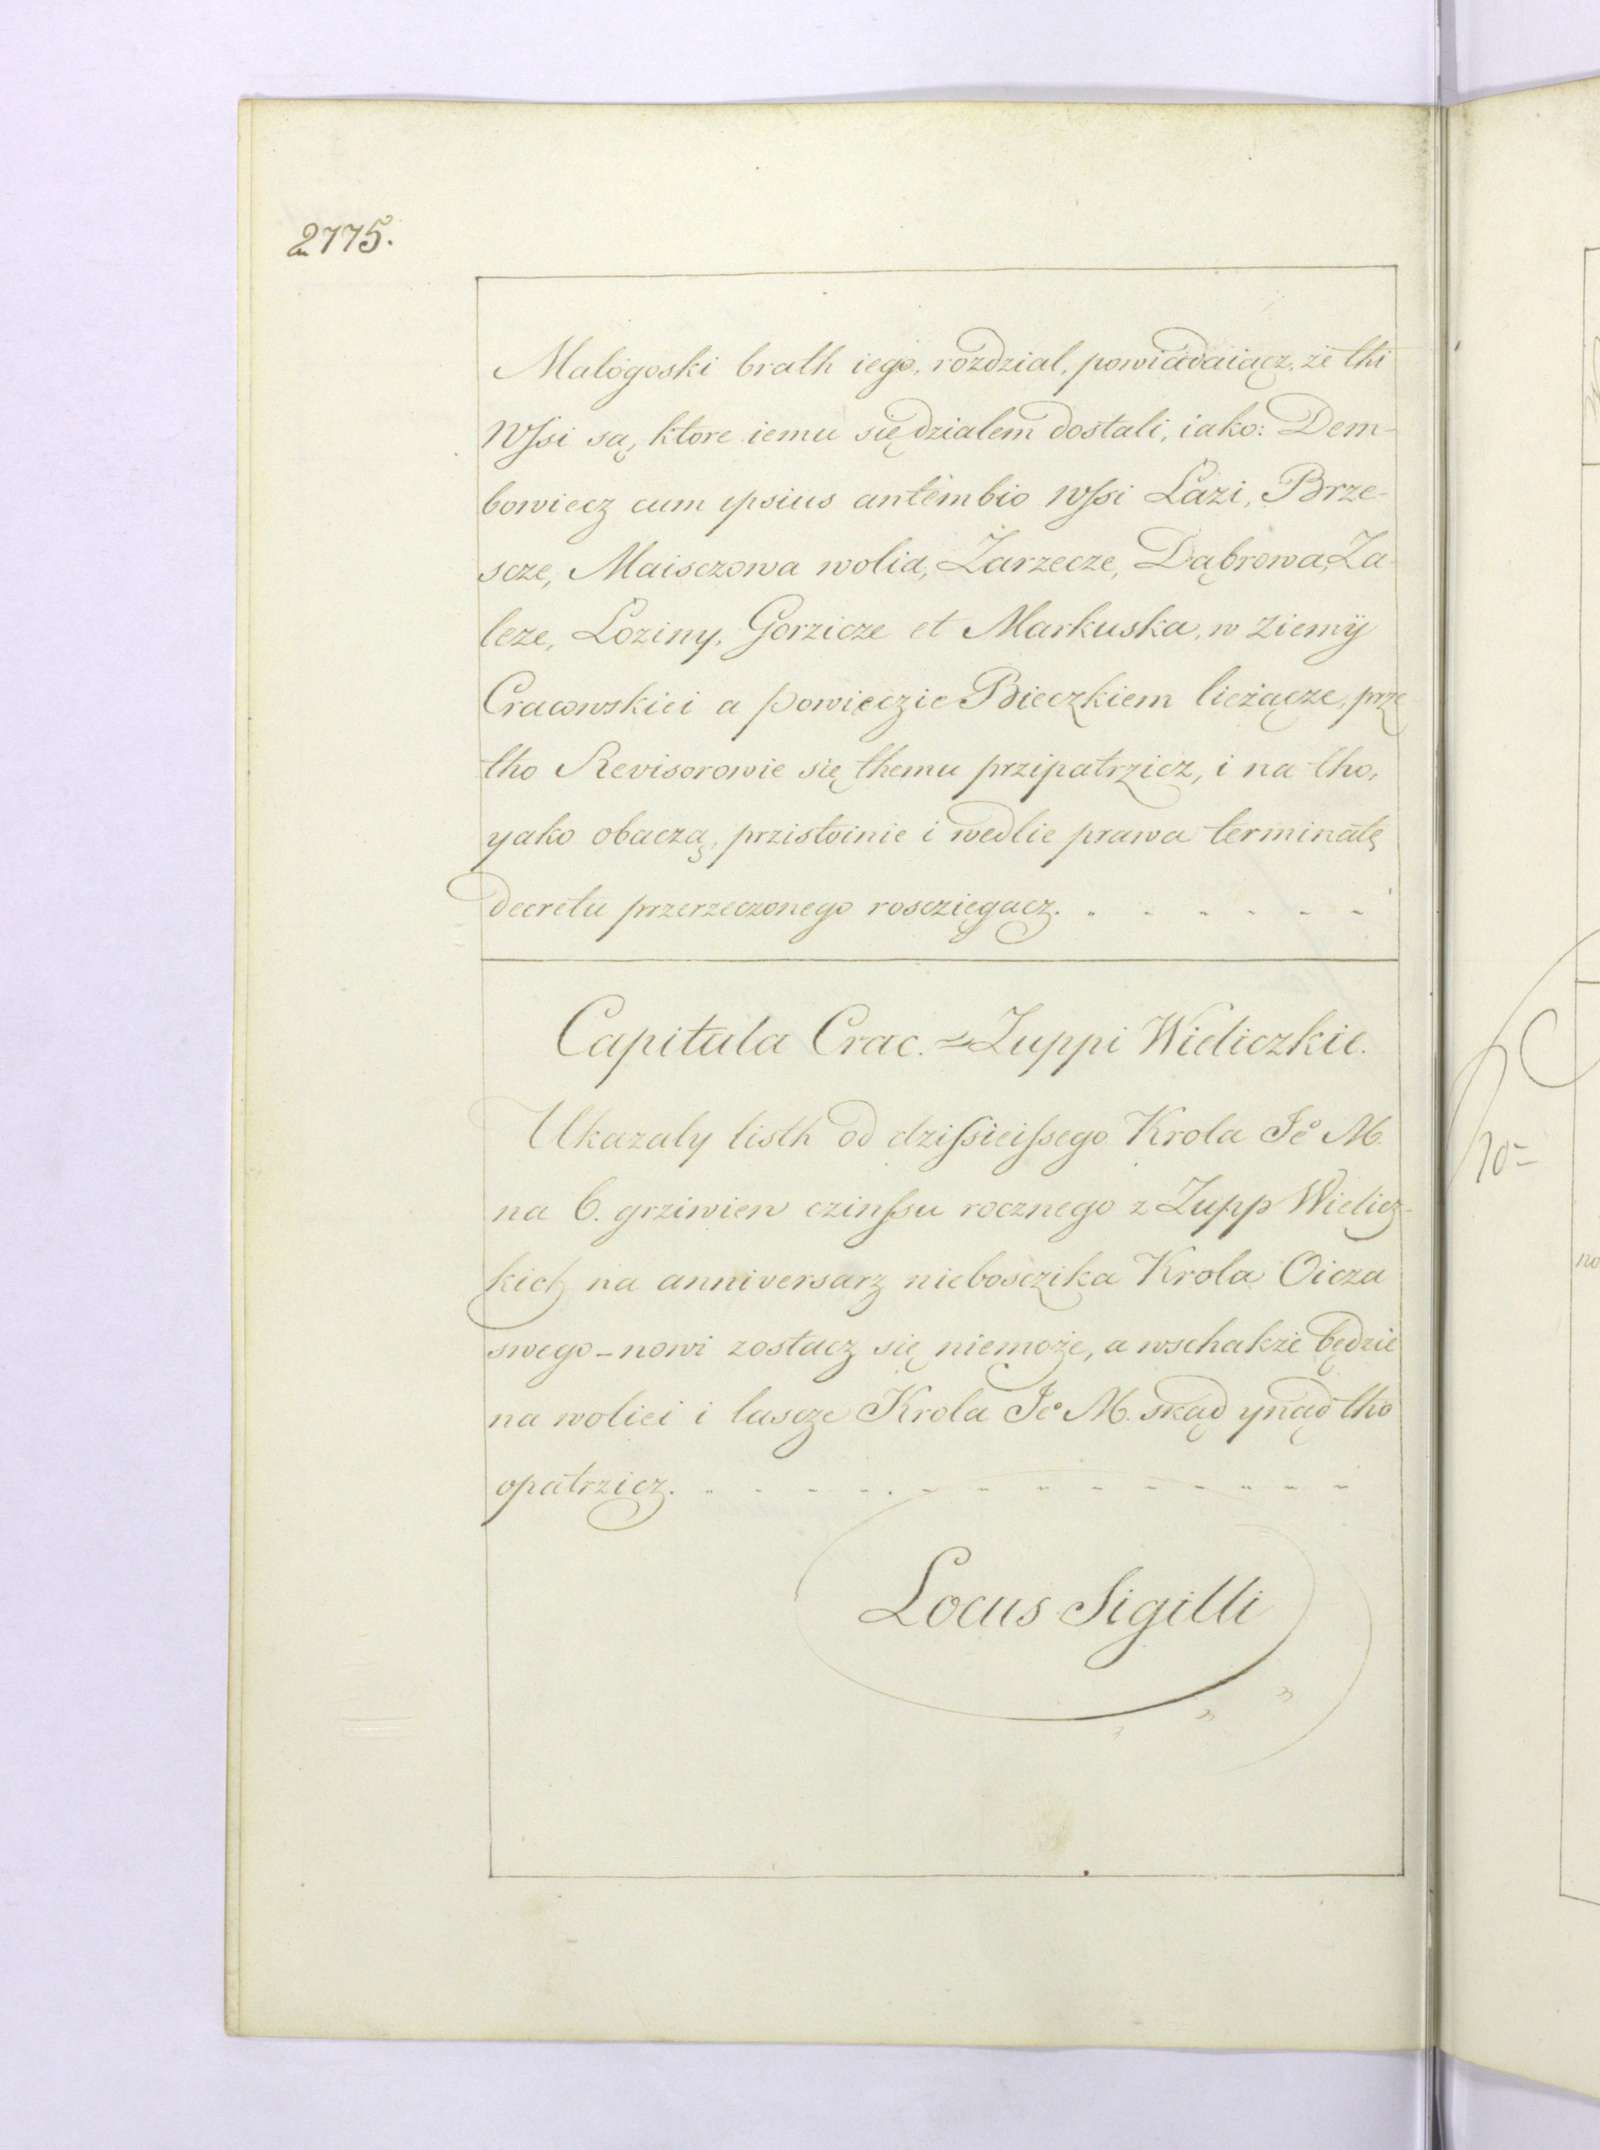 2775.
Malogoski brath iego, rozdzial, powiadaiącz, że thi
Wssi są, ktore iemu się dzialem dostali, iako: Dem-
bowiecz cum ipsius antembio Wssi Lazi, Brze-
scze, Maisczowa wolia, Zarzecze, Dąbrowa, Za-
leze, Loziny, Gorzicze et Markuska, w ziemÿ
Cracowskiei a powieczie Bieczkiem lieżącze, prze
tho Revisorowie się themu przipatrzicz, i na tho,
yako obaczą, przistoinie i wedlie prawa terminatę
decretu przerzeczonego rosciegacz.
Capitula Crac. Zuppi Wieliczkie.
Ukazaly listh od dzissieissego Krola Je° M.
na 6. grziwien czinssu rocznego z Zupp Wielicz-
kich na anniversarz nieboszczika Krola Oicza
swego - nowi zostacz się niemoże, a wschakże będzie
na woliei i lascze Krola Je° M. skąd ynąd tho
opatrzicz.
Locus Sigilli